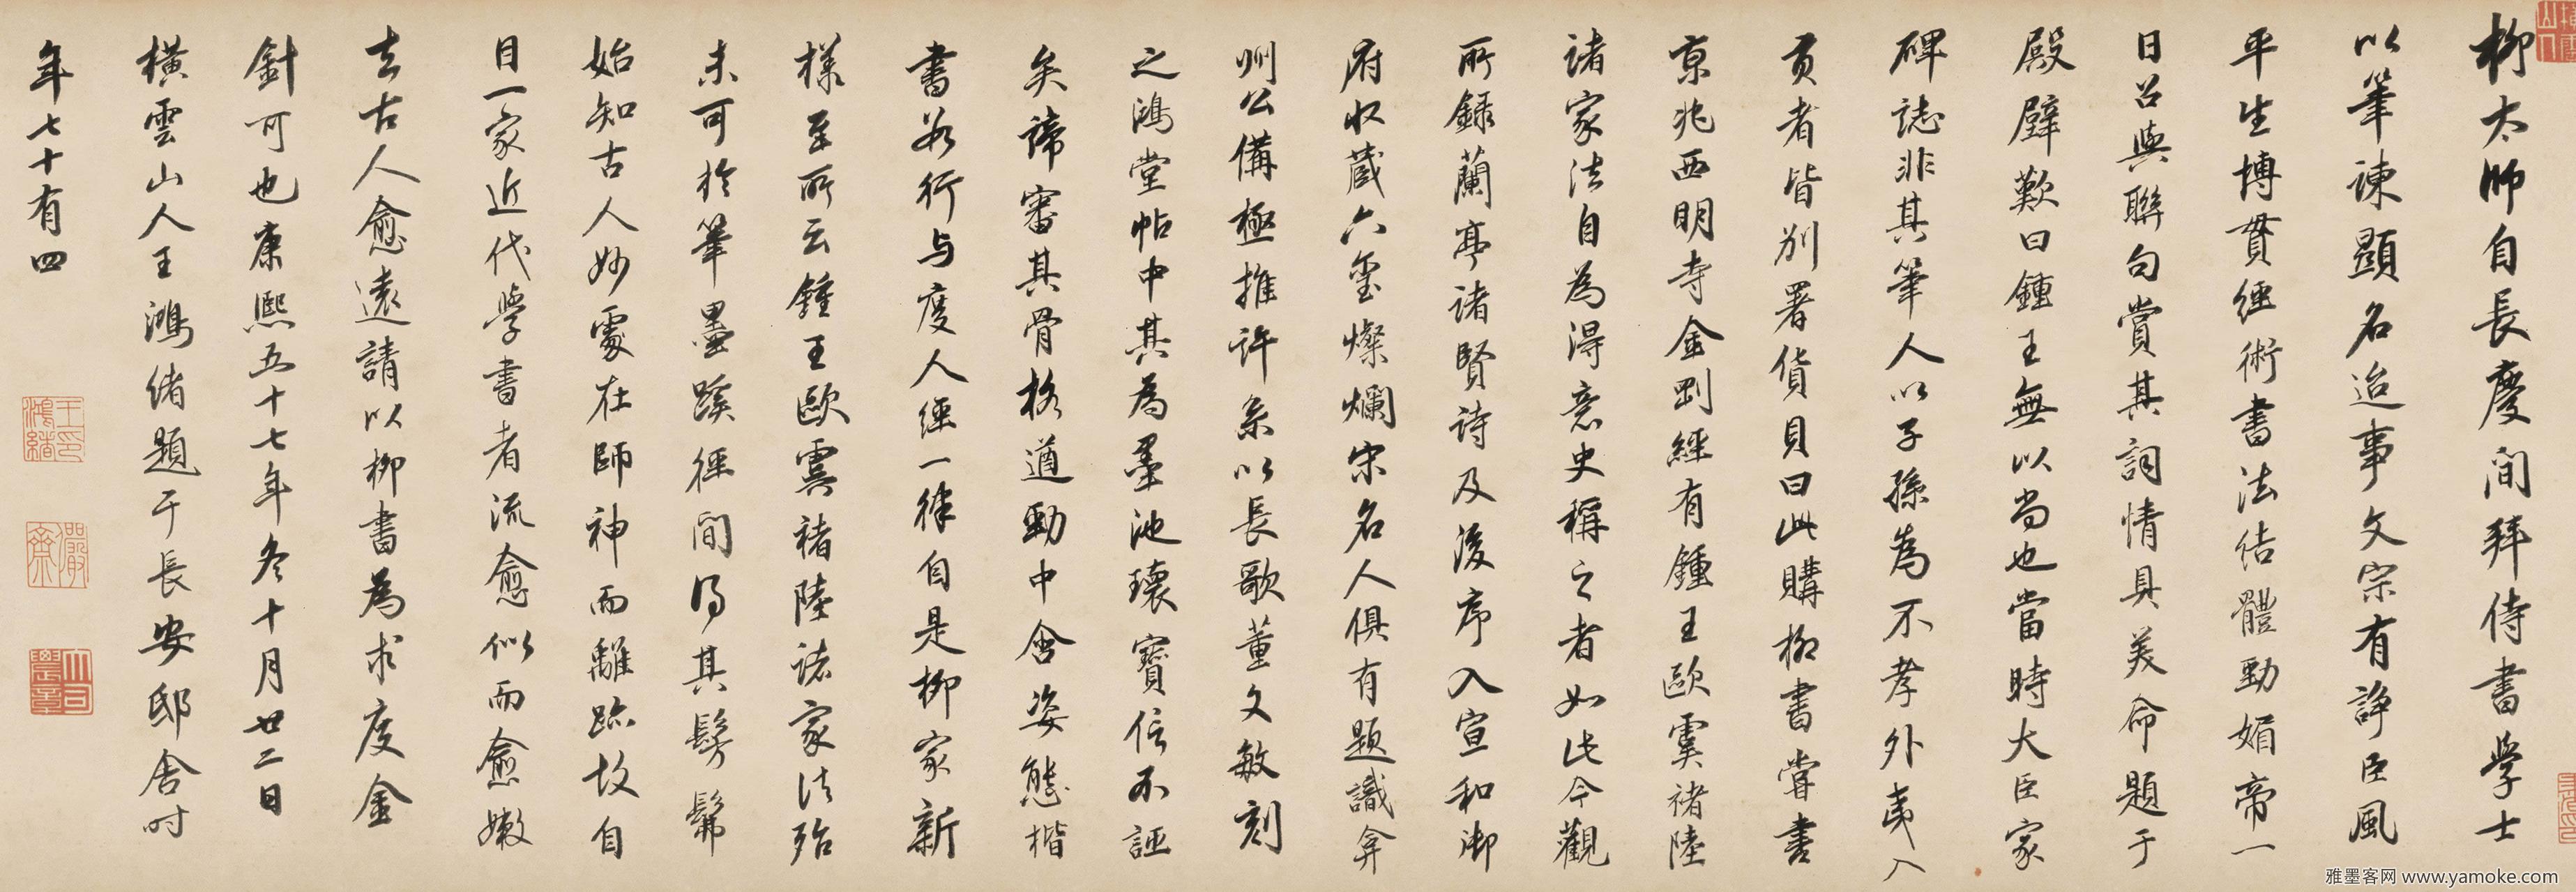 柳太師自長慶間拜侍書學士
以筆諫顯名迨事文宗有諍臣風
平生博貫經術書法結體勁媚帝一
日召與聯句賞其詞情具美命題于
殿壁歎曰鍾王無以尚也當時大臣家
碑誌非其筆人以子孫為不孝外夷入
貢者皆別署貨貝曰此購柳書嘗書
京兆西明寺金剛經有鍾王歐虞褚陸
諸家法自為得意史稱之者如此今觀
所錄蘭亭諸賢詩及後序入宣和御
府收藏六璽燦爛宋名人俱有題識弇
州公備極推許系以長歌董文敏刻
之鴻堂帖中其為墨池瓌寶信不誣
矣諦審其骨格遒勁中含姿態楷
書若行与度人經一律自是柳家新
樣至所云鍾王歐虞褚陸諸家法殆
未可於筆墨蹊徑間得其髣髴
始知古人妙處在師神而離跡故自
目一家近代學書者流愈似而愈嫩
去古人愈遠請以柳書為求度金
針可也康熙五十七年冬十月廿二日
橫雲山人王鴻緒題于長安邸舍时
年七十有四
王鴻緒印
儼齋
大司農章
雅墨客网 www.yamoke.com